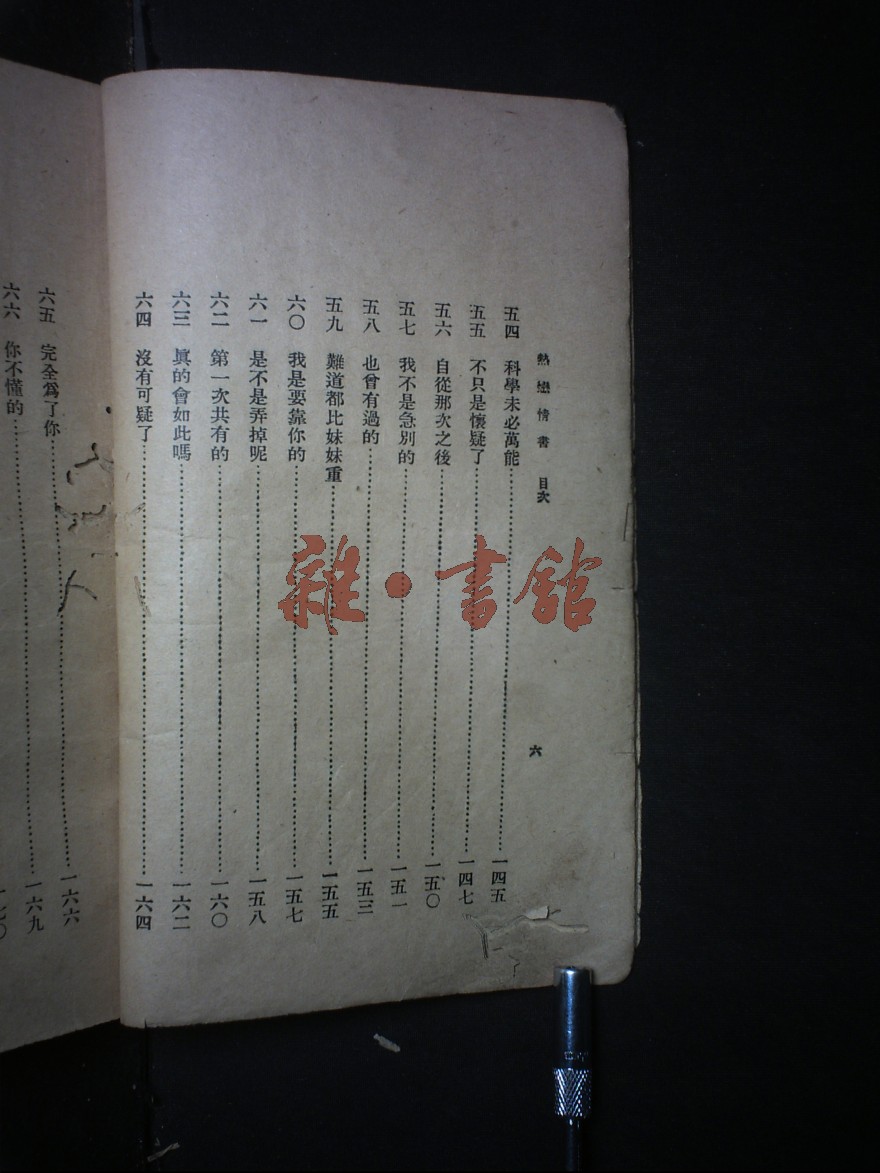 熱戀情書 目次 六
五四 科學未必萬能 一四五
五五 不只是懷疑了 一四七
五六 自從那次之後 一五〇
五七 我不是急別的 一五一
五八 也曾有過的 一五三
五九 難道都比妹妹重 一五五
六〇 我是要靠你的 一五七
六一 是不是弄掉呢 一五八
六二 第一次共有的 一六〇
六三 眞的會如此嗎 一六二
六四 沒有可疑了 一六四
六五 完全爲了你 一六六
六六 你不懂的 一六九
雜·書館